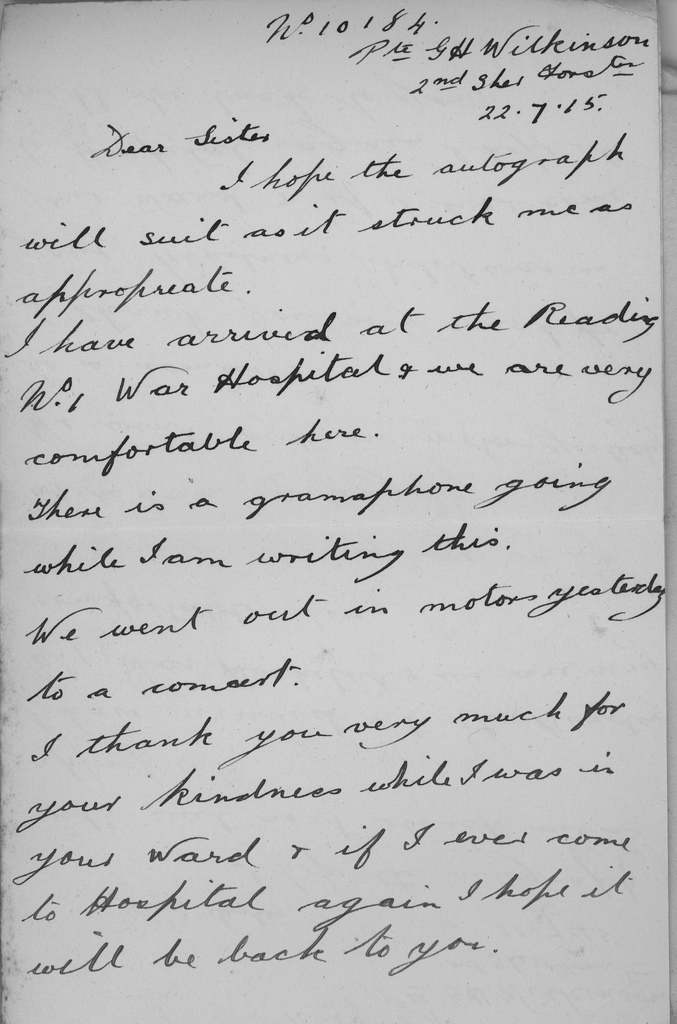 No. 10184.
Pte GH Wilkinson
2nd Sher Forstrs
22.7.15.
Dear Sister
I hope the autograph
will suit as it struck me as
appropreate.
I have arrived at the Reading
No. 1 War Hospital & we are very
comfortable here.
There is a gramaphone going
while I am writing this.
We went out in motors yesterday
to a concert.
I thank you very much for
your kindness while I was in
your Ward & if I ever come
to Hospital again I hope it
will be back to you.